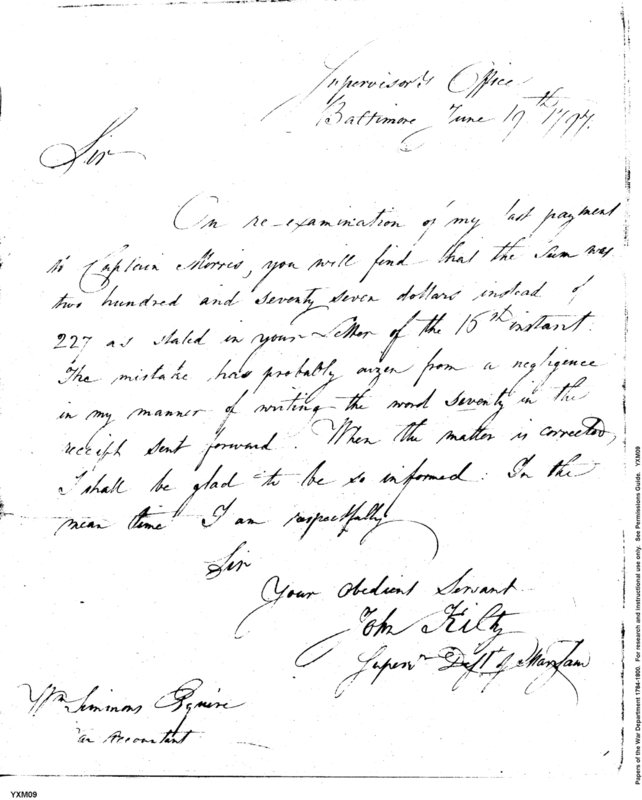 Supervisor's Office
Baltimore June 19th 1797.
Sir
On re-examination of my last payment
to Captain Morris, you will find that the Sum was
two hundred and seventy seven dollars instead of
227 as stated in your Letter of the 15th instant.
The mistake has probably arizen from a negligence
in my manner of writing the word seventy in the
receipt sent forward. When the matter is corrected,
I shall be glad to be so informed. In the
mean time I am respectfully
Sir
Your obedient Servant
John Kilty
Superv Dist of Maryland
Wm Simmons Esquire
Accountant
YXM09
Papers of the War Department 1784-1800. For research and instructional use only. See Permissions Guide. YXM09